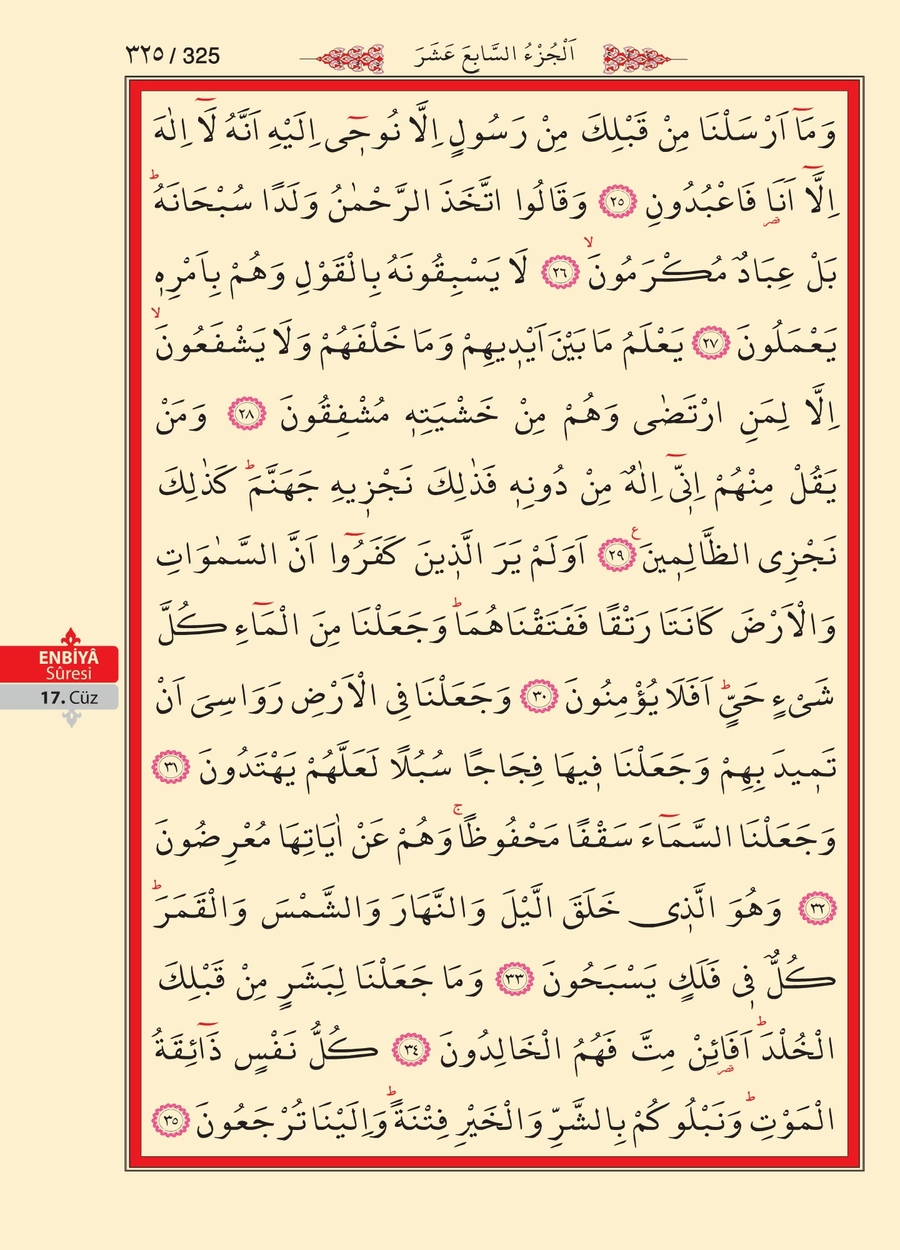 ٣٢٥ / 325
اَلْجُزْءُ السَّابِعَ عَشَرَ
وَمَٓا اَرْسَلْنَا مِنْ قَبْلِكَ مِنْ رَسُولٍ اِلَّا نُوح۪ٓى اِلَيْهِ اَنَّهُ لَٓا اِلٰهَ
اِلَّٓا اَنَا۬ فَاعْبُدُونِ ﴿٢٥﴾ وَقَالُوا اتَّخَذَ الرَّحْمٰنُ وَلَدًا سُبْحَانَهُۜ
بَلْ عِبَادٌ مُكْرَمُونَۙ ﴿٢٦﴾ لَا يَسْبِقُونَهُ بِالْقَوْلِ وَهُمْ بِاَمْرِه۪
يَعْمَلُونَ ﴿٢٧﴾ يَعْلَمُ مَا بَيْنَ اَيْد۪يهِمْ وَمَا خَلْفَهُمْ وَلَا يَشْفَعُونَۙ
اِلَّا لِمَنِ ارْتَضٰى وَهُمْ مِنْ خَشْيَتِه۪ مُشْفِقُونَ ﴿٢٨﴾ وَمَنْ
يَقُلْ مِنْهُمْ اِنّ۪ٓى اِلٰهٌ مِنْ دُونِه۪ فَذٰلِكَ نَجْز۪يهِ جَهَنَّمَۜ كَذٰلِكَ
نَجْزِى الظَّالِم۪ينَ۟ ﴿٢٩﴾ اَوَلَمْ يَرَ الَّذ۪ينَ كَفَرُٓوا اَنَّ السَّمٰوَاتِ
وَالْاَرْضَ كَانَتَا رَتْقًا فَفَتَقْنَاهُمَاۜ وَجَعَلْنَا مِنَ الْمَٓاءِ كُلَّ
شَىْءٍ حَىٍّۜ اَفَلَا يُؤْمِنُونَ ﴿٣٠﴾ وَجَعَلْنَا فِى الْاَرْضِ رَوَاسِىَ اَنْ
تَم۪يدَ بِهِمْ وَجَعَلْنَا ف۪يهَا فِجَاجًا سُبُلًا لَعَلَّهُمْ يَهْتَدُونَ ﴿٣١﴾
وَجَعَلْنَا السَّمَٓاءَ سَقْفًا مَحْفُوظًاۚ وَهُمْ عَنْ اٰيَاتِهَا مُعْرِضُونَ
﴿٣٢﴾ وَهُوَ الَّذ۪ى خَلَقَ الَّيْلَ وَالنَّهَارَ وَالشَّمْسَ وَالْقَمَرَۜ
كُلٌّ ف۪ى فَلَكٍ يَسْبَحُونَ ﴿٣٣﴾ وَمَا جَعَلْنَا لِبَشَرٍ مِنْ قَبْلِكَ
الْخُلْدَۜ اَفَا۬ئِنْ مِتَّ فَهُمُ الْخَالِدُونَ ﴿٣٤﴾ كُلُّ نَفْسٍ ذَٓائِقَةُ
الْمَوْتِۜ وَنَبْلُوكُمْ بِالشَّرِّ وَالْخَيْرِ فِتْنَةًۜ وَاِلَيْنَا تُرْجَعُونَ ﴿٣٥﴾
ENBİYÂ
Sûresi
17. Cüz